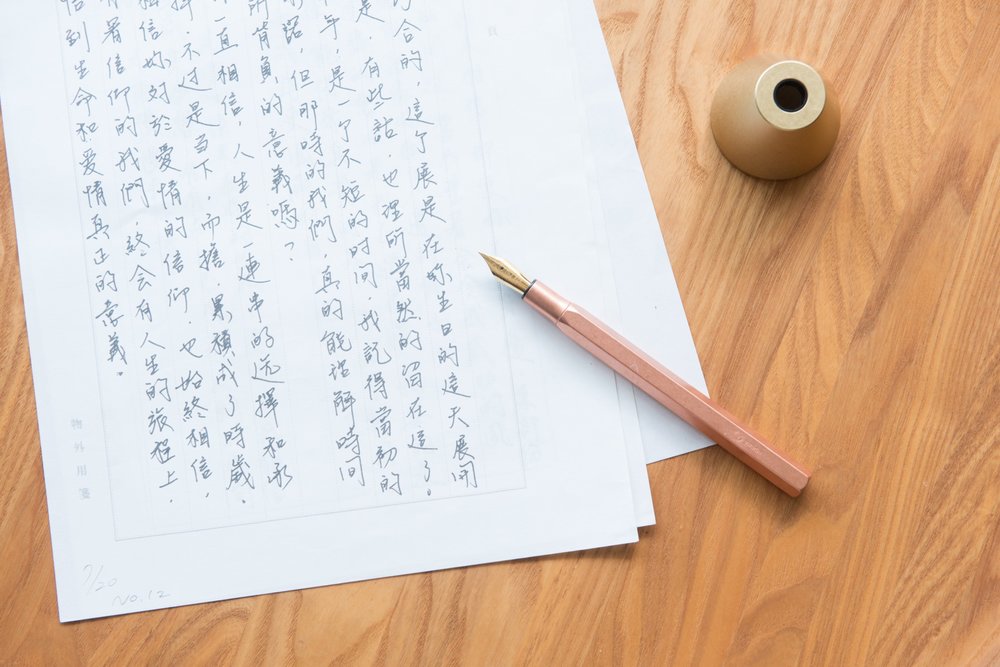 合的，這个展是在妳生日的這天展開
是，有些話，也理所當然的留在這了。
年，是一个不短的时间，我記得當初的
但那時的我們，真的能理解時間
所背負的意義嗎？
一直相信，人生是一連串的选擇和承
擇，不过是当下，而擔，累積成了時歲。
相信妳对於愛情的信仰，也始終相信，
着信仰的我們，終会有人生的旅程上，
悟到生命和爱情真正的意義。
物外用箋
7/20
No.12